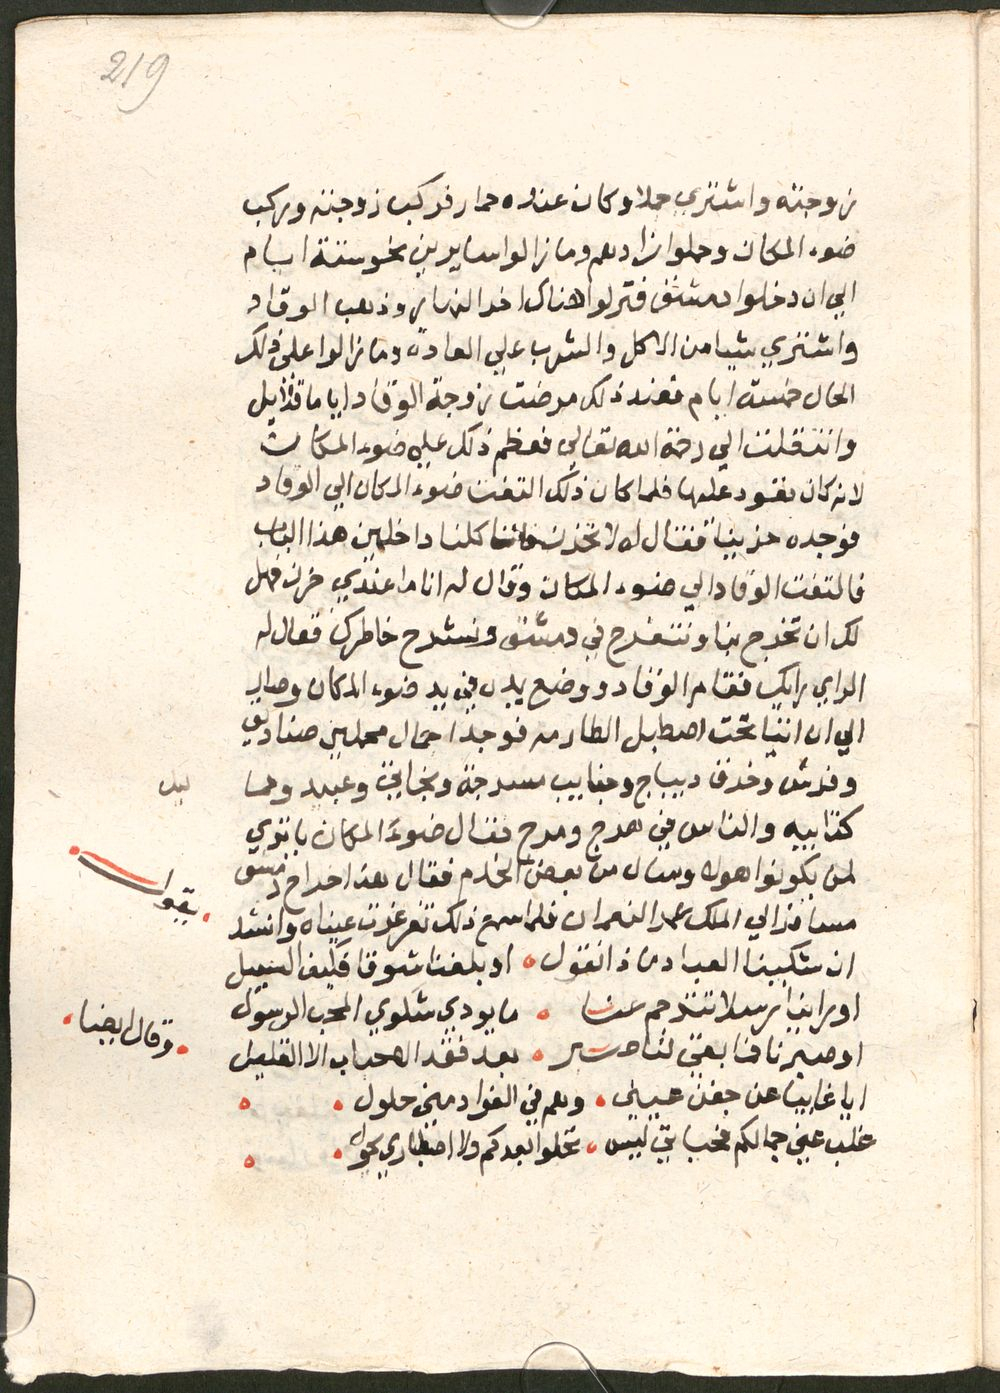 219
زوجته واشتري حملا وكان عنده حمار فركب زوجته وركب
ضوء المكان وحملوا زادهم وما زالوا سايرين نحو ستة ايام
الي ان دخلوا دمشق فنزلوا هناك اخر النهار وذهب الوقاد
واشتري شيا من الاكل والشرب علي العاده وما زالوا علي ذلك
الحال خمسة ايام فعند ذلك مرضت زوجة الوقاد اياما قلايل
وانتقلت الي رحمة الله تعالي فعظم ذلك عليه ضوء المكان
لانه كان تعود عليها فلما كان ذلك التفت ضوء المكان الي الوقاد
فوجده حزينا فقال له لا تحزن فاننا كلنا داخلين هذا الباب
فالتفت الوقاد الي ضوء المكان وقال له انا ما عندي حزن فهل
لك ان تخرج بنا ونتفرج في دمشق ونشرح خاطرك فقال له
الراي رايك فقام الوقاد ووضع يده في يد ضوء المكان وصار
الي ان اتيا تحت اصطبل الطارمه فوجدا جمال محملين صناديق
وفرش وخرق ديباج وجنايب مسرجة وبخاتي وعبيد ومما
ليك
كتابيه والناس في هرج ومرج فقال ضوء المكان يا تري
لمن يكونوا هولا وسال من بعض الخدم فقال هذا خراج دمشق
مسافر الي الملك عمر النعمان فلما سمع ذلك تغرغرت عيناه وانشد
يقول
ان شكينا العباد ماذا نقول او بلغنا شوقا فكيف السبيل
او راينا رسلا تترحم عنا ما يودي شكوي المحب الرسول
او صبرنا فما بقي لنا صبر بعد فقد الاحباب الا القليل
وقال ايضا
ايا غايبا عن جفن عيني وهم في الفواد مني حلول
غاب عيني جمالكم فحياتي ليس تحلوا بعدكم ولا اصطباري يحول